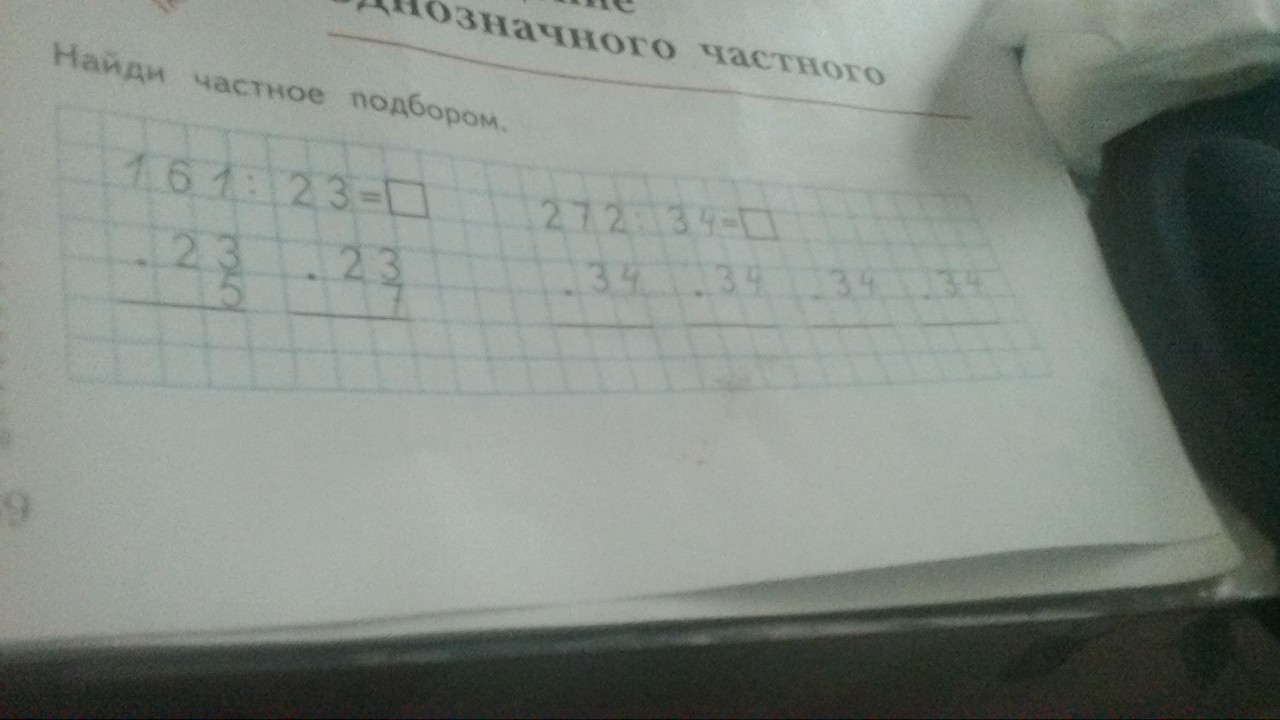 однозначного частного
Найди частное подбором.
161 : 23 = □
272 : 34 = □
. 23 . 23
5 7
. 34 . 34 . 34 . 34
9